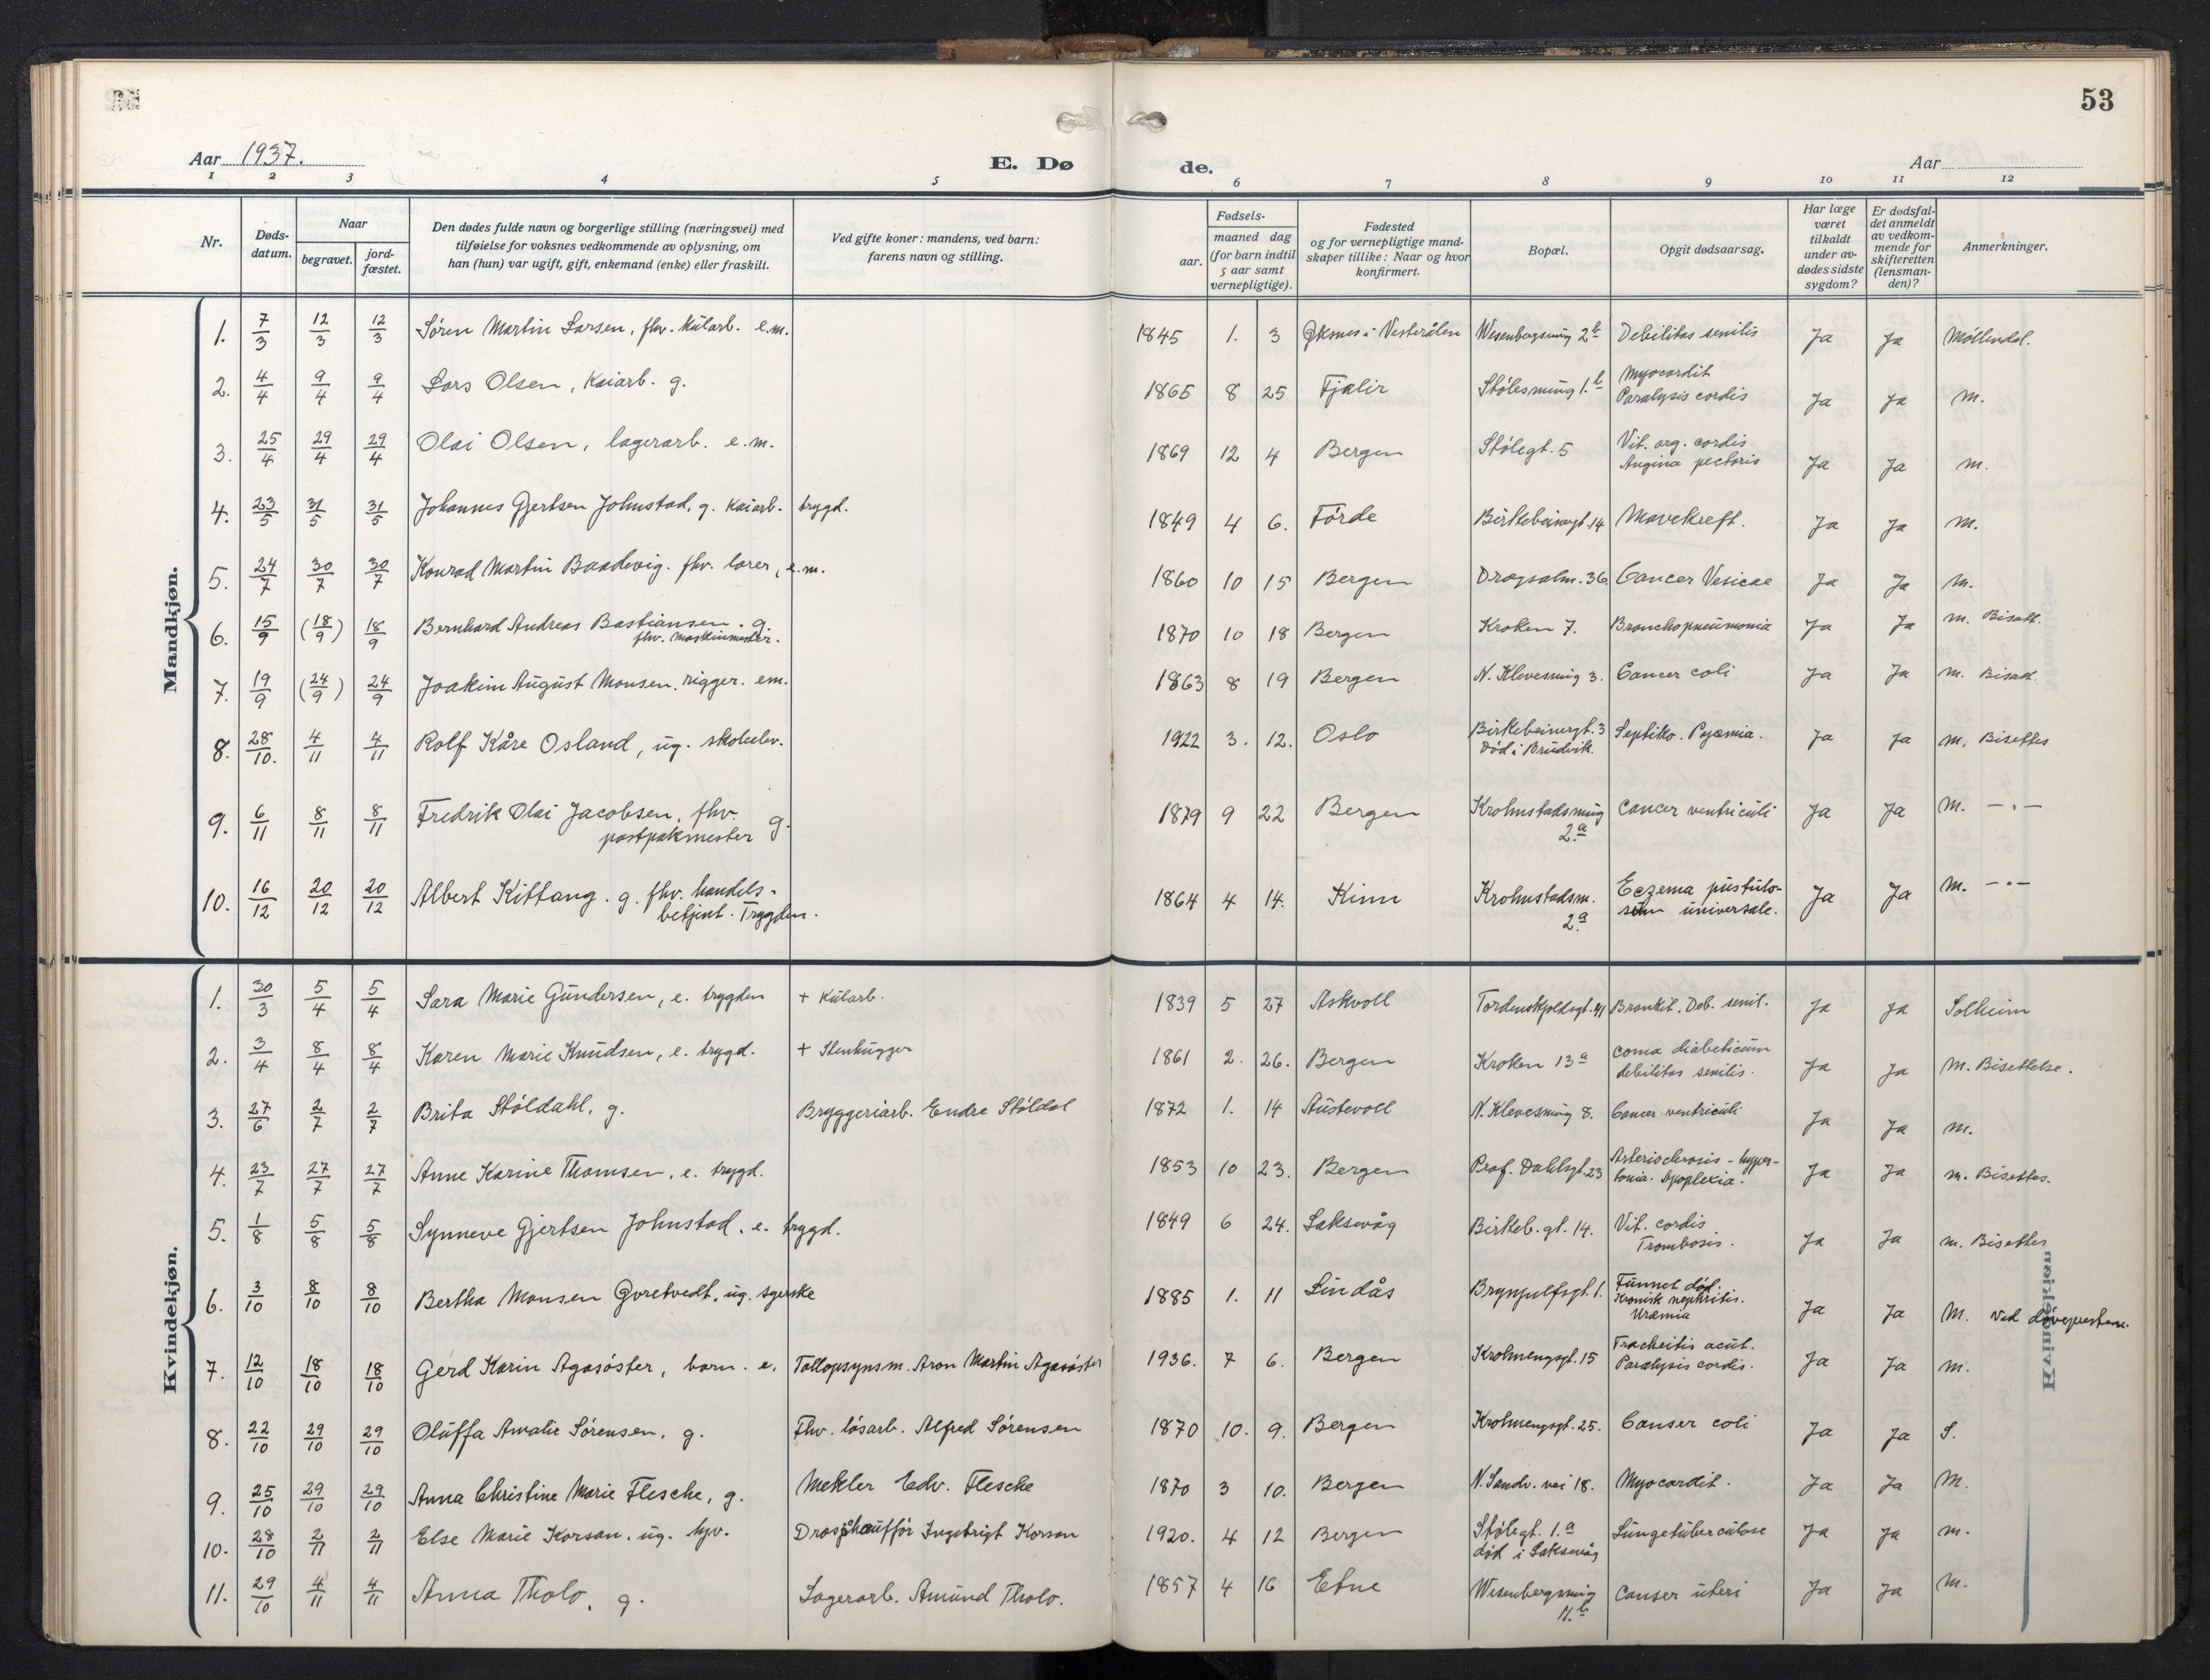 53
Aar 1937.
E. Dø de.
Aar
1 2 3 4 5 6 7 8 9 10 11 12
Nr.
Døds-
datum.
Naar
begravet.
jord-
fæstet.
Den dødes fulde navn og borgerlige stilling (næringsvei) med
tilføielse for voksnes vedkommende av oplysning, om
han (hun) var ugift, gift, enkemand (enke) eller fraskilt.
Ved gifte koner: mandens, ved barn:
farens navn og stilling.
Fødsels-
aar.
maaned dag
(for barn indtil
5 aar samt
vernepligtige).
Fødested
og for vernepligtige mand-
skaper tillike: Naar og hvor
konfirmert.
Bopæl.
Opgit dødsaarsag.
Har læge
været
tilkaldt
under av-
dødes sidste
sygdom?
Er dødsfal-
det anmeldt
av vedkom-
mende for
skifteretten
(lensman-
den)?
Anmerkninger.
Mandkjøn.
1. 7/3 12/3 12/3 Søren Martin Larsen, fhv. kularb. e.m. 1845 1. 3 Øksnes i Vesterålen Wesenbergsmug 2b Debilitas senilis Ja Ja Møllendal.
2. 4/4 9/4 9/4 Lars Olsen, Kaiarb. g. 1865 8 25 Fjaler Stølesmug 1.b Myocardit
Paralysis cordis Ja Ja M.
3. 25/4 29/4 29/4 Olai Olsen, lagerarb. e.m. 1869 12 4 Bergen Stølegt. 5 Vit. org. cordis
Angina pectoris Ja Ja M.
4. 23/5 31/5 31/5 Johannes Gjertsen Johnstad, g. Kaiarb. trygd. 1849 4 6. Førde Birkebeinergt. 14 Mavekreft. Ja Ja M.
5. 24/7 30/7 30/7 Konrad Martin Baadevig. fhv. lærer, e.m. 1860 10 15 Bergen Dragsalm. 36. Cancer Vesicae Ja Ja M.
6. 15/9 (18/9) 18/9 Bernhard Andreas Bastiansen. g.
fhv. maskinmester. 1870 10 18 Bergen Kroken 7. Bronchopneumonia Ja Ja M. Bisatt.
7. 19/9 (24/9) 24/9 Joakim August Monsen. rigger. em. 1863 8 19 Bergen N. Klevesmug 3. Cancer coli Ja Ja M. Bisatt.
8. 28/10. 4/11 4/11 Rolf Kåre Osland, ug. skoleelev. 1922 3. 12. Oslo Birkebeinergt. 3
Død i Bruvik. Septiko. Pyæmia. Ja Ja M. Bisettes
9. 6/11 8/11 8/11 Fredrik Olai Jacobsen, fhv.
postpakmester g. 1879 9 22 Bergen Krohnstadsmug
2.a Cancer ventriculi Ja Ja M. -.-
10. 16/12 20/12 20/12 Albert Kittang. g. fhv. handels-
betjent. Trygden. 1864 4 14. Kinn Krohnstadsm.
2.a Eczema pustulo-
sum universale. Ja Ja M. -.-
Kvindekjøn.
1. 30/3 5/4 5/4 Sara Marie Gundersen, e. trygden + Kularb. 1839 5 27 Askvoll Tordenskjoldsgt. 41 Bronkit. Deb. senil. Ja Ja Solheim
2. 3/4 8/4 8/4 Karen Marie Knudsen, e. trygd. + Stenhugger 1861 2. 26. Bergen Kroken 13a Coma diabeticum
debilitas senilis. Ja Ja M. Bisettelse.
3. 27/6 2/7 2/7 Brita Støldahl, g. Bryggeriarb. Endre Støldal 1872 1. 14 Austevoll N. Klevesmug 8. Cancer ventriculi Ja Ja M.
4. 23/7 27/7 27/7 Anne Karine Thomsen, e. trygd. 1853 10 23. Bergen Prof. Dahlsgt. 23 Arteriosclerosis - hyper-
tonia. Apoplexia. Ja Ja M. Bisettes.
5. 1/8 5/8 5/8 Synneve Gjertsen Johnstad. e. trygd. 1849 6 24. Laksevåg Birkeb. gt. 14. Vit. cordis
Trombosis. Ja Ja M. Bisettes
6. 3/10 8/10 8/10 Bertha Monsen Qvretvedt. ug. syerske 1885 1. 11 Lindås Brynjulfsgt. 1. Funnet død.
Kronisk nephritis.
Uremia Ja Ja M. Ved døvepresten.
7. 12/10 18/10 18/10 Gerd Karin Agasøster, barn. e. Tollopsynsm. Aron Martin Agasøster 1936. 7 6. Bergen Krohnengsgt. 15 Trackeitis acut.
Paralysis cordis. Ja Ja M.
8. 22/10 29/10 29/10 Oluffa Amalie Sørensen, g. Fhv. løsarb. Alfred Sørensen 1870 10. 9. Bergen Krohnengsgt. 25. Canser coli Ja Ja S.
9. 25/10 29/10 29/10 Anna Christine Marie Flesche, g. Mekler Edv. Flesche 1870 3 10. Bergen N. Sandv. vei 18. Myocardit. Ja Ja M.
10. 28/10 2/11 2/11 Else Marie Korsan. ug. hjv. Drosjchauffør Ingebrigt Korsan 1920. 4 12 Bergen Stølegt. 1.a
død i Laksevåg Lungetuberculose Ja Ja M.
11. 29/10 4/11 4/11 Anna Tholo, g. Lagerarb. Amund Tholo. 1857 4 16 Etne Wesenbergsmug
11.b Canser uteri Ja Ja M.